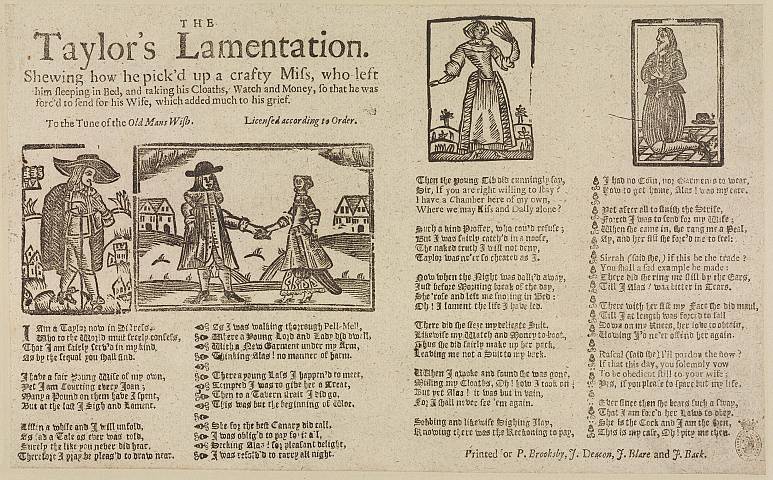 THE
Taylor's Lamentation.
Shewing how he pick'd up a crafty Miss, who left
him sleeping in Bed, and taking his Cloaths, Watch and Money, so that he was
forc'd to send for his Wife, which added much to his grief.
To the Tune of the Old Mans Wish. Licensed according to Order.
I Am a Taylor now in Distress,
Who to the World must needs confess,
That I am fairly serv'd in my kind,
As by the sequel you shall find.
I have a fair Young Wife of my own,
Yet I am Courting every Joan;
Many a Pound on them have I spent,
But at the last I Sigh and Lament.
Listen a while and I will unfold,
As sad a Tale as ever was told,
Surely the like you never did hear,
Therefore I pray be pleas'd to draw near.
As I was walking thorough Pell-Mell,
Where a Young Log and Lady did dwell,
With a New Garment under my Arm,
Thinking Alas! no manner of harm.
There a young Lass I happen'd to meet,
Tempted I was to give her a Treat,
Then to a Tavern strait I did go,
This was but the beginning of Woe.
She for the best Canary did call,
I was oblig'd to pay for it all,
Seeking Alas! for pleasant delight,
I was resolv'd to tarry all night.
Then the young Tib did cunningly say,
Sir, If you are right willing to stay?
I have a Chamber here of my own,
Where we may Kiss and Dally alone?
Such a kind Proffer, who cou'd refuse;
But I was fairly catch'd in a noose,
The naked truth I will not deny,
Taylor was ne'er so cheated as I.
Now when the Night was dally'd away,
Just before Morning break of the day,
She rose and left me snoring in Bed:
Oh! I lament the life I have led.
There did she seize my delicate Suit,
Likewise my Watch and Money to boot,
Thus she did fairly make up her pack,
Leaving me not a Suit to my back.
When I awoke and found she was gone,
Missing my Cloaths, Oh! how I took on;
But yet Alas! it was but in vain,
For I shall never see 'em again.
Sobbing and likewise Sighing I lay,
Knowing there was the Reckoning to pay,
I had no Coin, nor Garments to wear,
How to get home, Alas! was my care.
Yet after all to finish the Strife,
Forc'd I was to send for my Wife;
When she came in, she rang me a Peal,
Ay, and her fist she forc'd me to feel:
Sirrah (said she,) if this be the trade?
You shall a sad example be made:
There did she ring me still by the Ears,
Till I Alas! was bitter in Tears.
There with her fist my Face she did maul,
Till I at length was forced to fall
Down on my Knees, her love to obtain,
Vowing I'd ne'er offend her again.
Rascal (said she) I'll pardon thee now?
If that this day, you solemnly vow
To be obedient still to your wife;
Yes, if you please to spare but my life.
Ever since then she bears such a sway,
That I am forc'd her Laws to obey.
She is the Cock and I am the Hen,
This is my case, Oh! pity me then.
Printed for P. Brooksby, J. Deacon, J. Blare and J. Back.